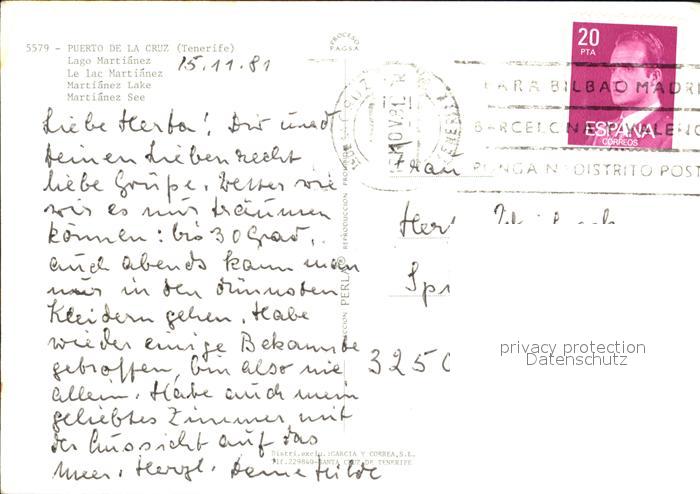 5579 - PUERTO DE LA CRUZ (Tenerife)
Lago Martiánez
Le lac Martiánez
Martiánez Lake
Martiánez See
15.11.81
PROCESO
FAGSA
20
PTA
ESPAÑA
CORREOS
PARA BILBAO MADRI
BARCELONA VALENC
PONGA Nº DISTRITO POST
Liebe Herta! Dir und
Deinen Lieben recht
liebe Grüße. Wetter wie
wir es nur träumen
können: bis 30 Grad,
auch abends kann man
nur in den dünnsten
Kleidern gehen. Habe
wieder einige Bekannte
getroffen, bin also nie
allein. Habe auch mein
geliebtes Zimmer mit
der Aussicht auf das
Meer. Herzl. Deine Hilde
Frau
Her
Spr
3250
privacy protection
Datenschutz
Distri.exclu.:GARCIA Y CORREA,S.L.
Tlf.229840-SANTA CRUZ DE TENERIFE